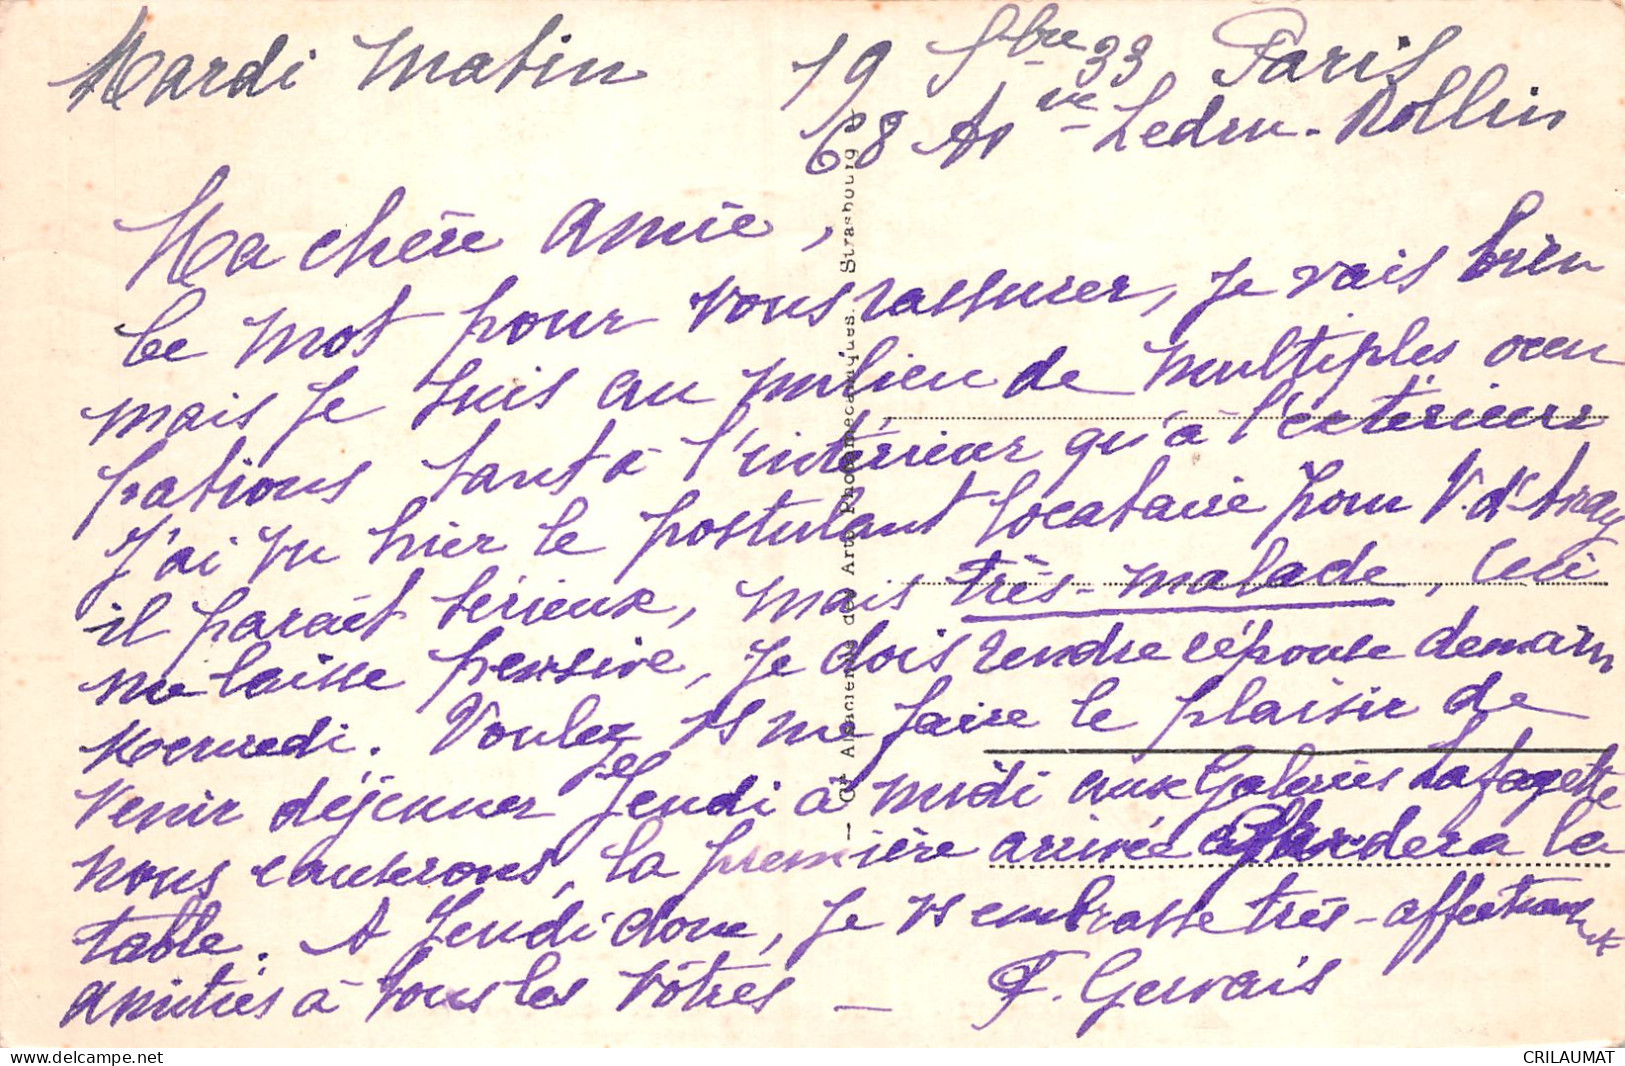 Mardi matin 19 Sbre 33 Paris
68 Ave Ledru-Rollin
Ma chère amie,
Ce mot pour vous rassurer, je vais bien
mais je suis au milieu de multiples occu
pations tant à l'intérieur qu'à l'extérieur
J'ai vu hier le postulant locataire pour V. d'Avray
il paraît sérieux, mais très-malade, ceci
me laisse pensive, je dois rendre réponse demain
mercredi. Voulez vs me faire le plaisir de
venir déjeuner Jeudi à midi aux Galeries Lafayette
nous causerons, la première arrivée gardera la
table. A Jeudi donc, je vs embrasse très-affectueusement
amitiés à tous les vôtres — F. Gervais
— Cie Alsacienne des Arts Photomécaniques. Strasbourg
CRILAUMAT